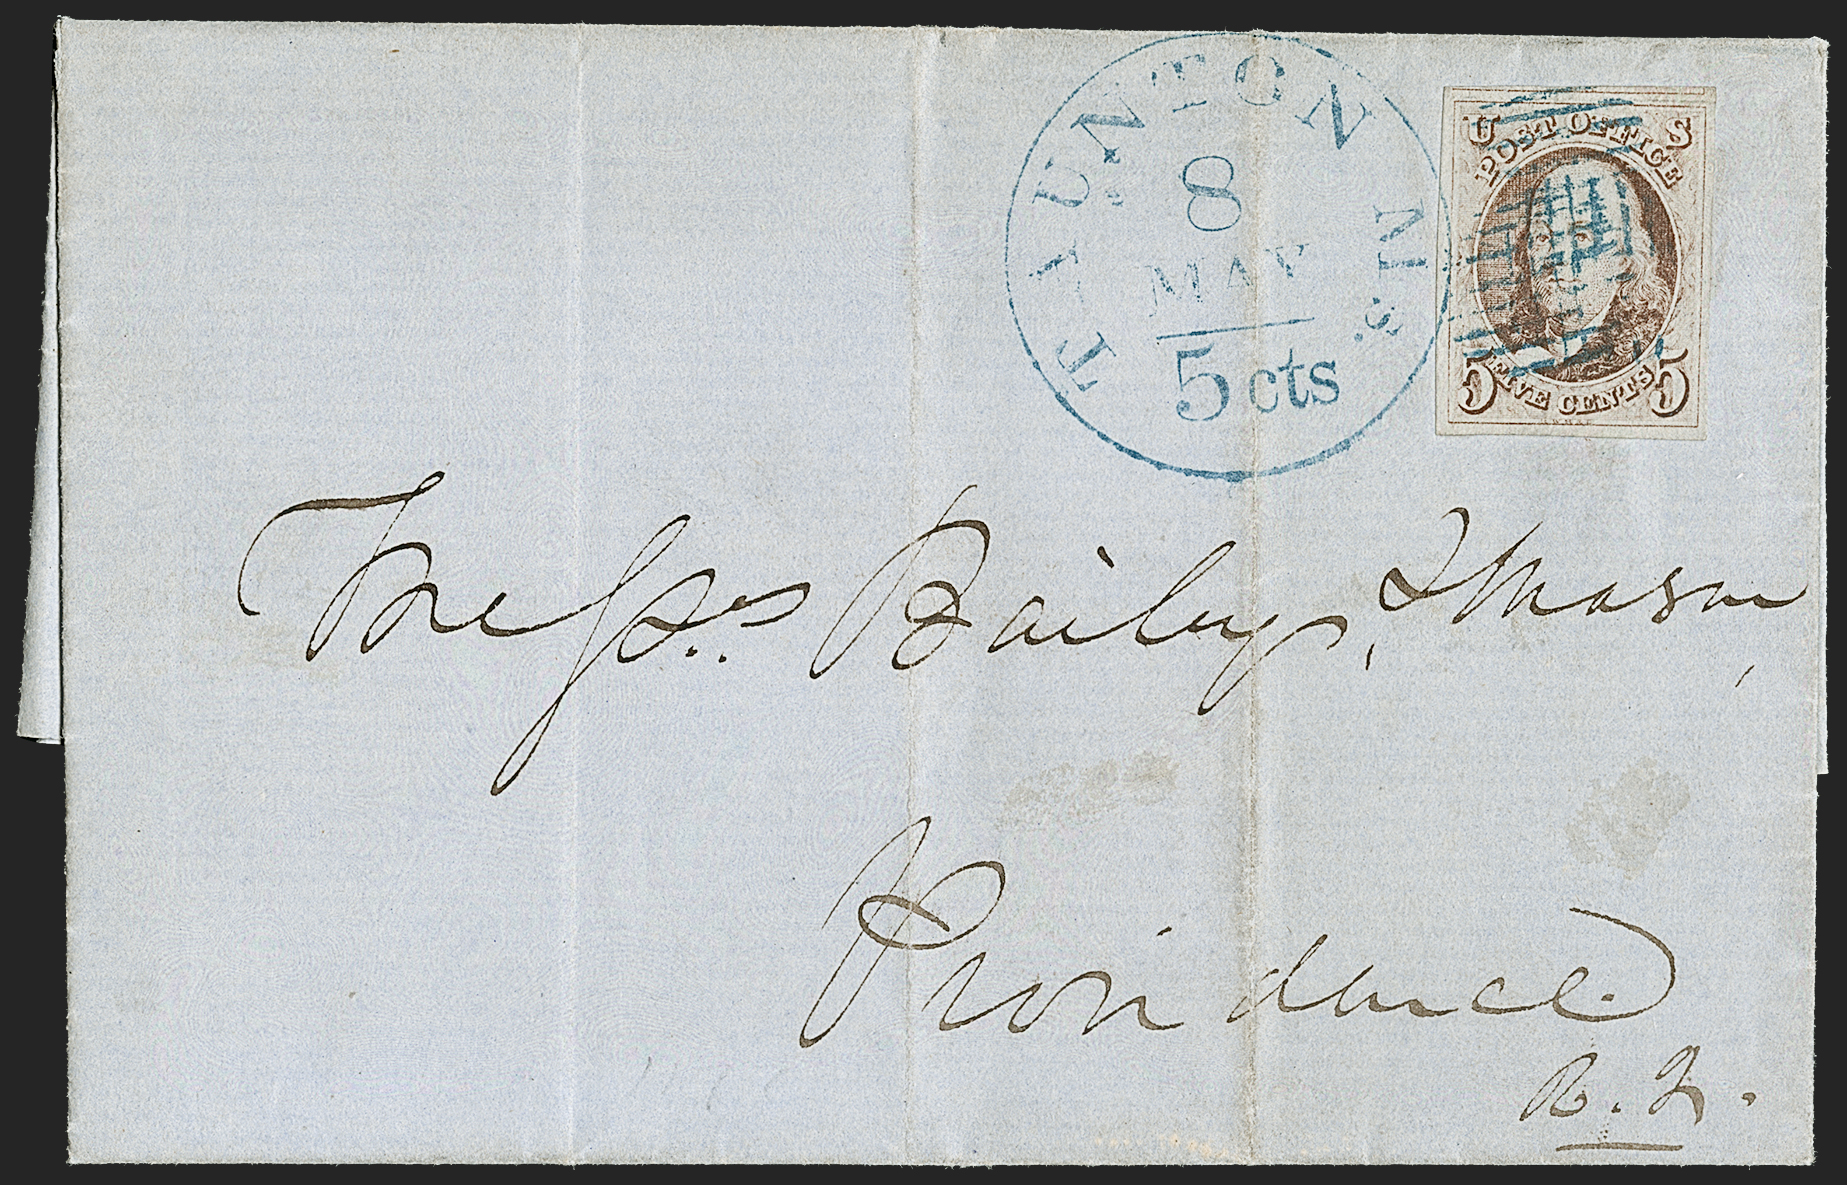 TAUNTON Ms.
8
MAY
5 cts
U S
POST OFFICE
5 FIVE CENTS 5
Messrs. Baily, & Mason,
Providence
R. I.